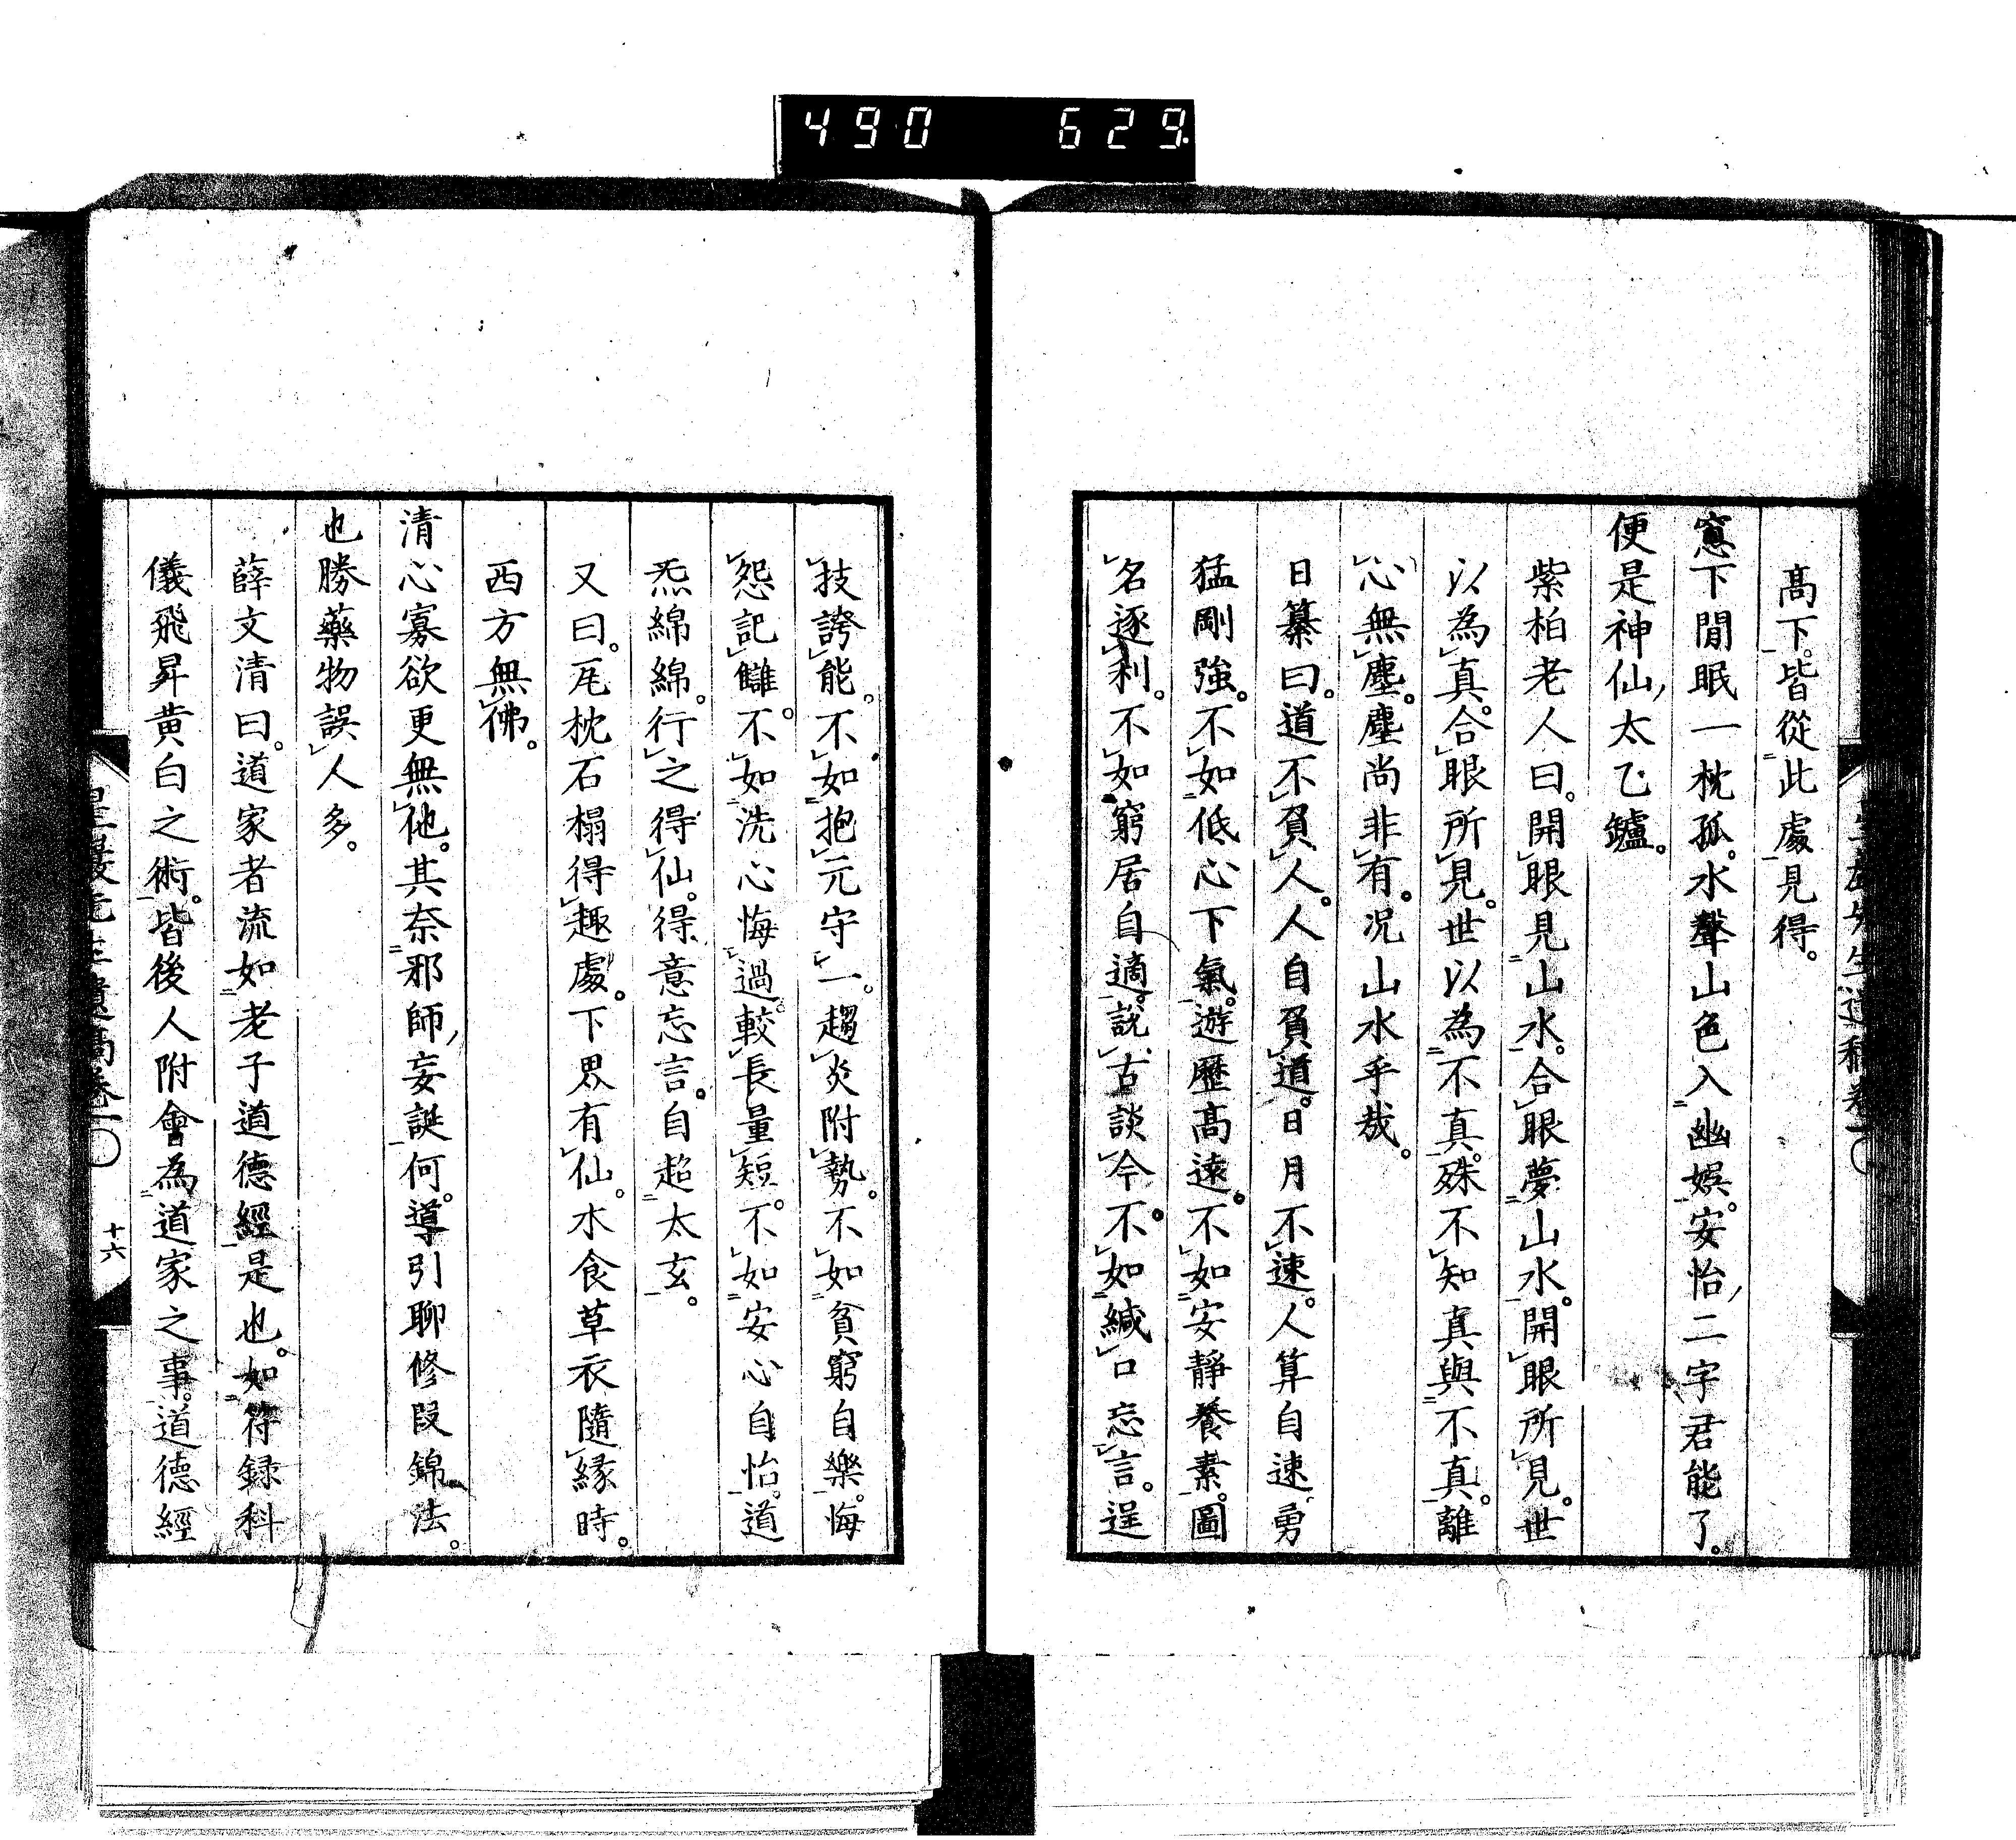 490 629
高下。皆從此處見得。
窻下閒眠一枕孤。水聲山色入幽娯。安怡二字君能了。
便是神仙太乙鑪。
紫柏老人曰。開眼見山水。合眼夢山水。開眼所見。世
以為真。合眼所見。世以為不真。殊不知真與不真。離
心無塵。塵尚非有。况山水乎哉。
日纂曰。道不負人。人自負道。日月不速。人算自速。勇
猛剛強。不如低心下氣。遊歷高遠。不如安靜養素。圖
名逐利。不如窮居自適。説古談今。不如緘口忘言。逞
技誇能。不如抱元守一。趨炎附勢。不如貧窮自樂。悔
怨記讎。不如洗心悔過。較長量短。不如安心自怡。道
炁綿綿。行之得仙。得意忘言。自超太玄。
又曰。瓦枕石榻得趣處。下界有仙。木食草衣隨縁時。
西方無佛。
清心寡欲更無他。其奈邪師妄誕何。導引聊修叚錦法。
也勝藥物誤人多。
薛文清曰。道家者流如老子道德經是也。如符録科
儀飛昇黄白之術。皆後人附會為道家之事。道德經
十六